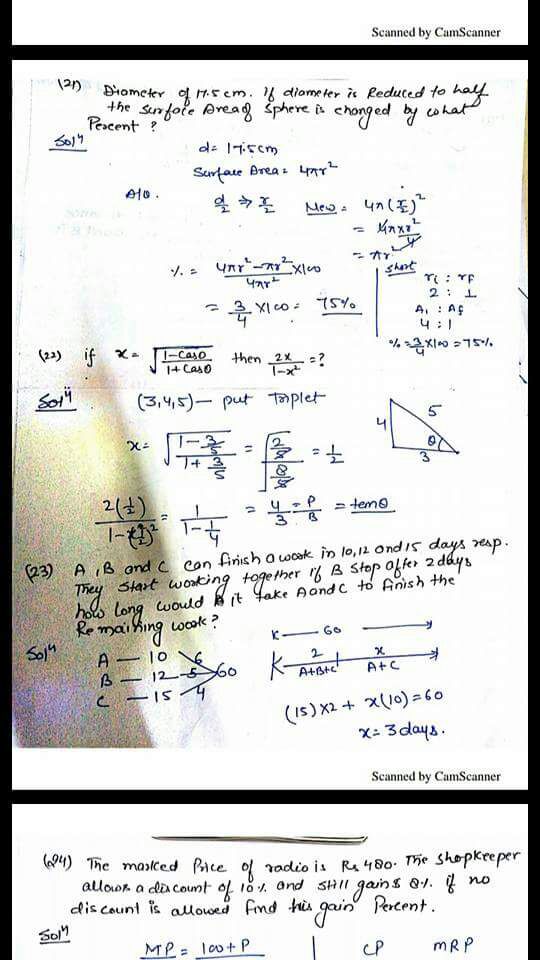 Scanned by CamScanner
(21) Diameter of 17.5cm. If diameter is Reduced to half
the Surface Area of Sphere is changed by what
Percent ?
Solⁿ
d = 17.5cm
Surface Area = 4πr²
A/Q.
d/2 ⇒ r/2 New = 4π(r/2)²
= 4π×r²/4
= πr²
% = (4πr² - πr²)/4πr² ×100
= 3/4 ×100 = 75%
Short
r₁ : rf
2 : 1
A₁ : Af
4 : 1
% = 3/4 ×100 = 75%
(22) if x = √(1-Cosθ)/(1+Cosθ) then 2x/1-x² = ?
Solⁿ
(3,4,5) — put Triplet
x = √(1-3/5)/(1+3/5) = √(2/5)/(8/5) = 1/2
4 5 θ 3
2(1/2)/1-(1/2)² = 1/1-1/4 = 4/3 = P/B = tanθ
(23) A, B and C can finish a work in 10, 12 and 15 days resp.
They start working together if B Stop after 2 days
how long would it take A and C to finish the
Remaining work?
Solⁿ
A — 10 6
B — 12 — 5 60
C — 15 4
K — 60
2 x
A+B+C A+C
(15)×2 + x(10) = 60
x = 3 days.
Scanned by CamScanner
(24) The marked Price of radio is Rs 480. The Shopkeeper
allows a discount of 10% and still gains 8%. if no
discount is allowed find his gain Percent.
Solⁿ
MP = 100+P
CP MRP